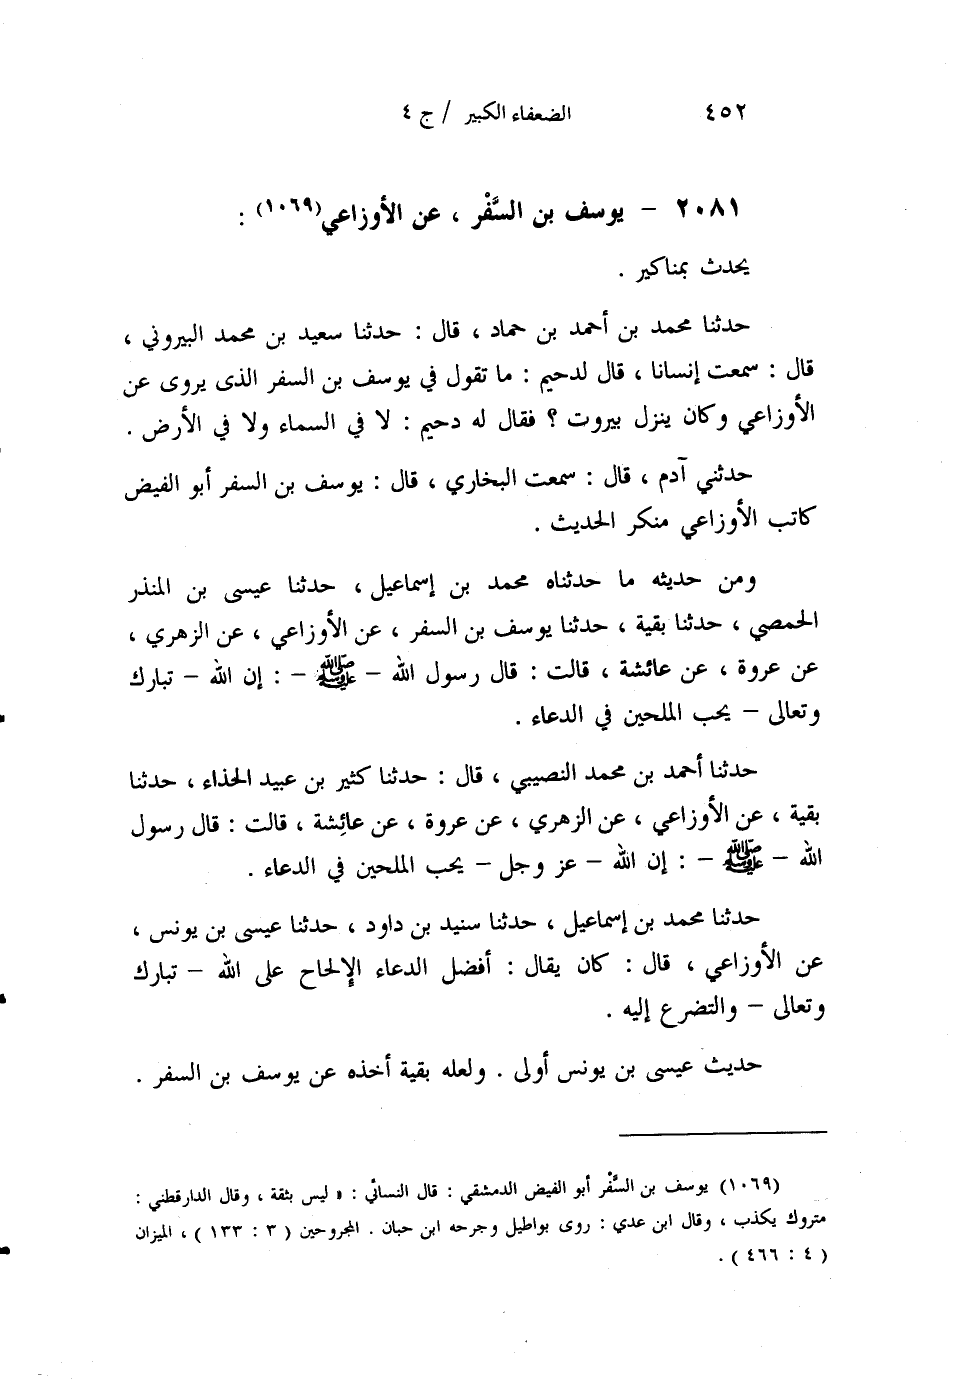 ٤٥٢ الضعفاء الكبير / ج ٤
٢٠٨١ – يوسف بن السَّفْر ، عن الأوزاعي(١٠٦٩) :
يحدث بمناكير .
حدثنا محمد بن أحمد بن حماد ، قال : حدثنا سعيد بن محمد البيروني ،
قال : سمعت إنسانا ، قال لدحيم : ما تقول في يوسف بن السفر الذى يروى عن
الأوزاعي وكان ينزل بيروت ؟ فقال له دحيم : لا في السماء ولا في الأرض .
حدثني آدم ، قال : سمعت البخاري ، قال : يوسف بن السفر أبو الفيض
كاتب الأوزاعي منكر الحديث .
ومن حديثه ما حدثناه محمد بن إسماعيل ، حدثنا عيسى بن المنذر
الحمصي ، حدثنا بقية ، حدثنا يوسف بن السفر ، عن الأوزاعي ، عن الزهري ،
عن عروة ، عن عائشة ، قالت : قال رسول الله – ﷺ – : إن الله – تبارك
وتعالى – يحب الملحين في الدعاء .
حدثنا أحمد بن محمد النصيبي ، قال : حدثنا كثير بن عبيد الحذاء ، حدثنا
بقية ، عن الأوزاعي ، عن الزهري ، عن عروة ، عن عائِشة ، قالت : قال رسول
الله – ﷺ – : إن الله – عز وجل – يحب الملحين في الدعاء .
حدثنا محمد بن إسماعيل ، حدثنا سنيد بن داود ، حدثنا عيسى بن يونس ،
عن الأوزاعي ، قال : كان يقال : أفضل الدعاء الإلحاح على الله – تبارك
وتعالى – والتضرع إليه .
حديث عيسى بن يونس أولى . ولعله بقية أخذه عن يوسف بن السفر .
(١٠٦٩) يوسف بن السَّفْر أبو الفيض الدمشقي : قال النسائي : « ليس بثقة ، وقال الدارقطني :
متروك يكذب ، وقال ابن عدي : روى بواطيل وجرحه ابن حبان . المجروحين ( ٣ : ١٣٣ ) ، الميزان
( ٤ : ٤٦٦ ) .